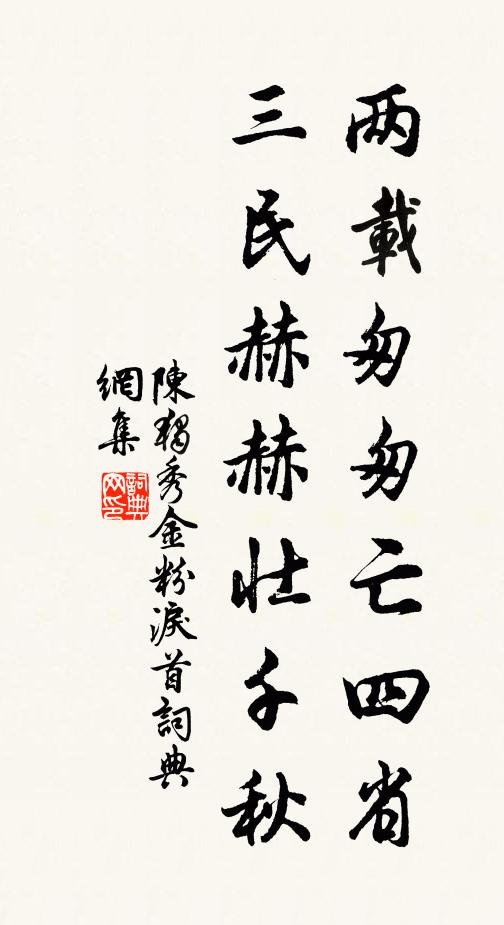 两載匆匆亡四省
三民赫赫壮千秋
陳獨秀金粉淚首詞典
網集
詞典
网印